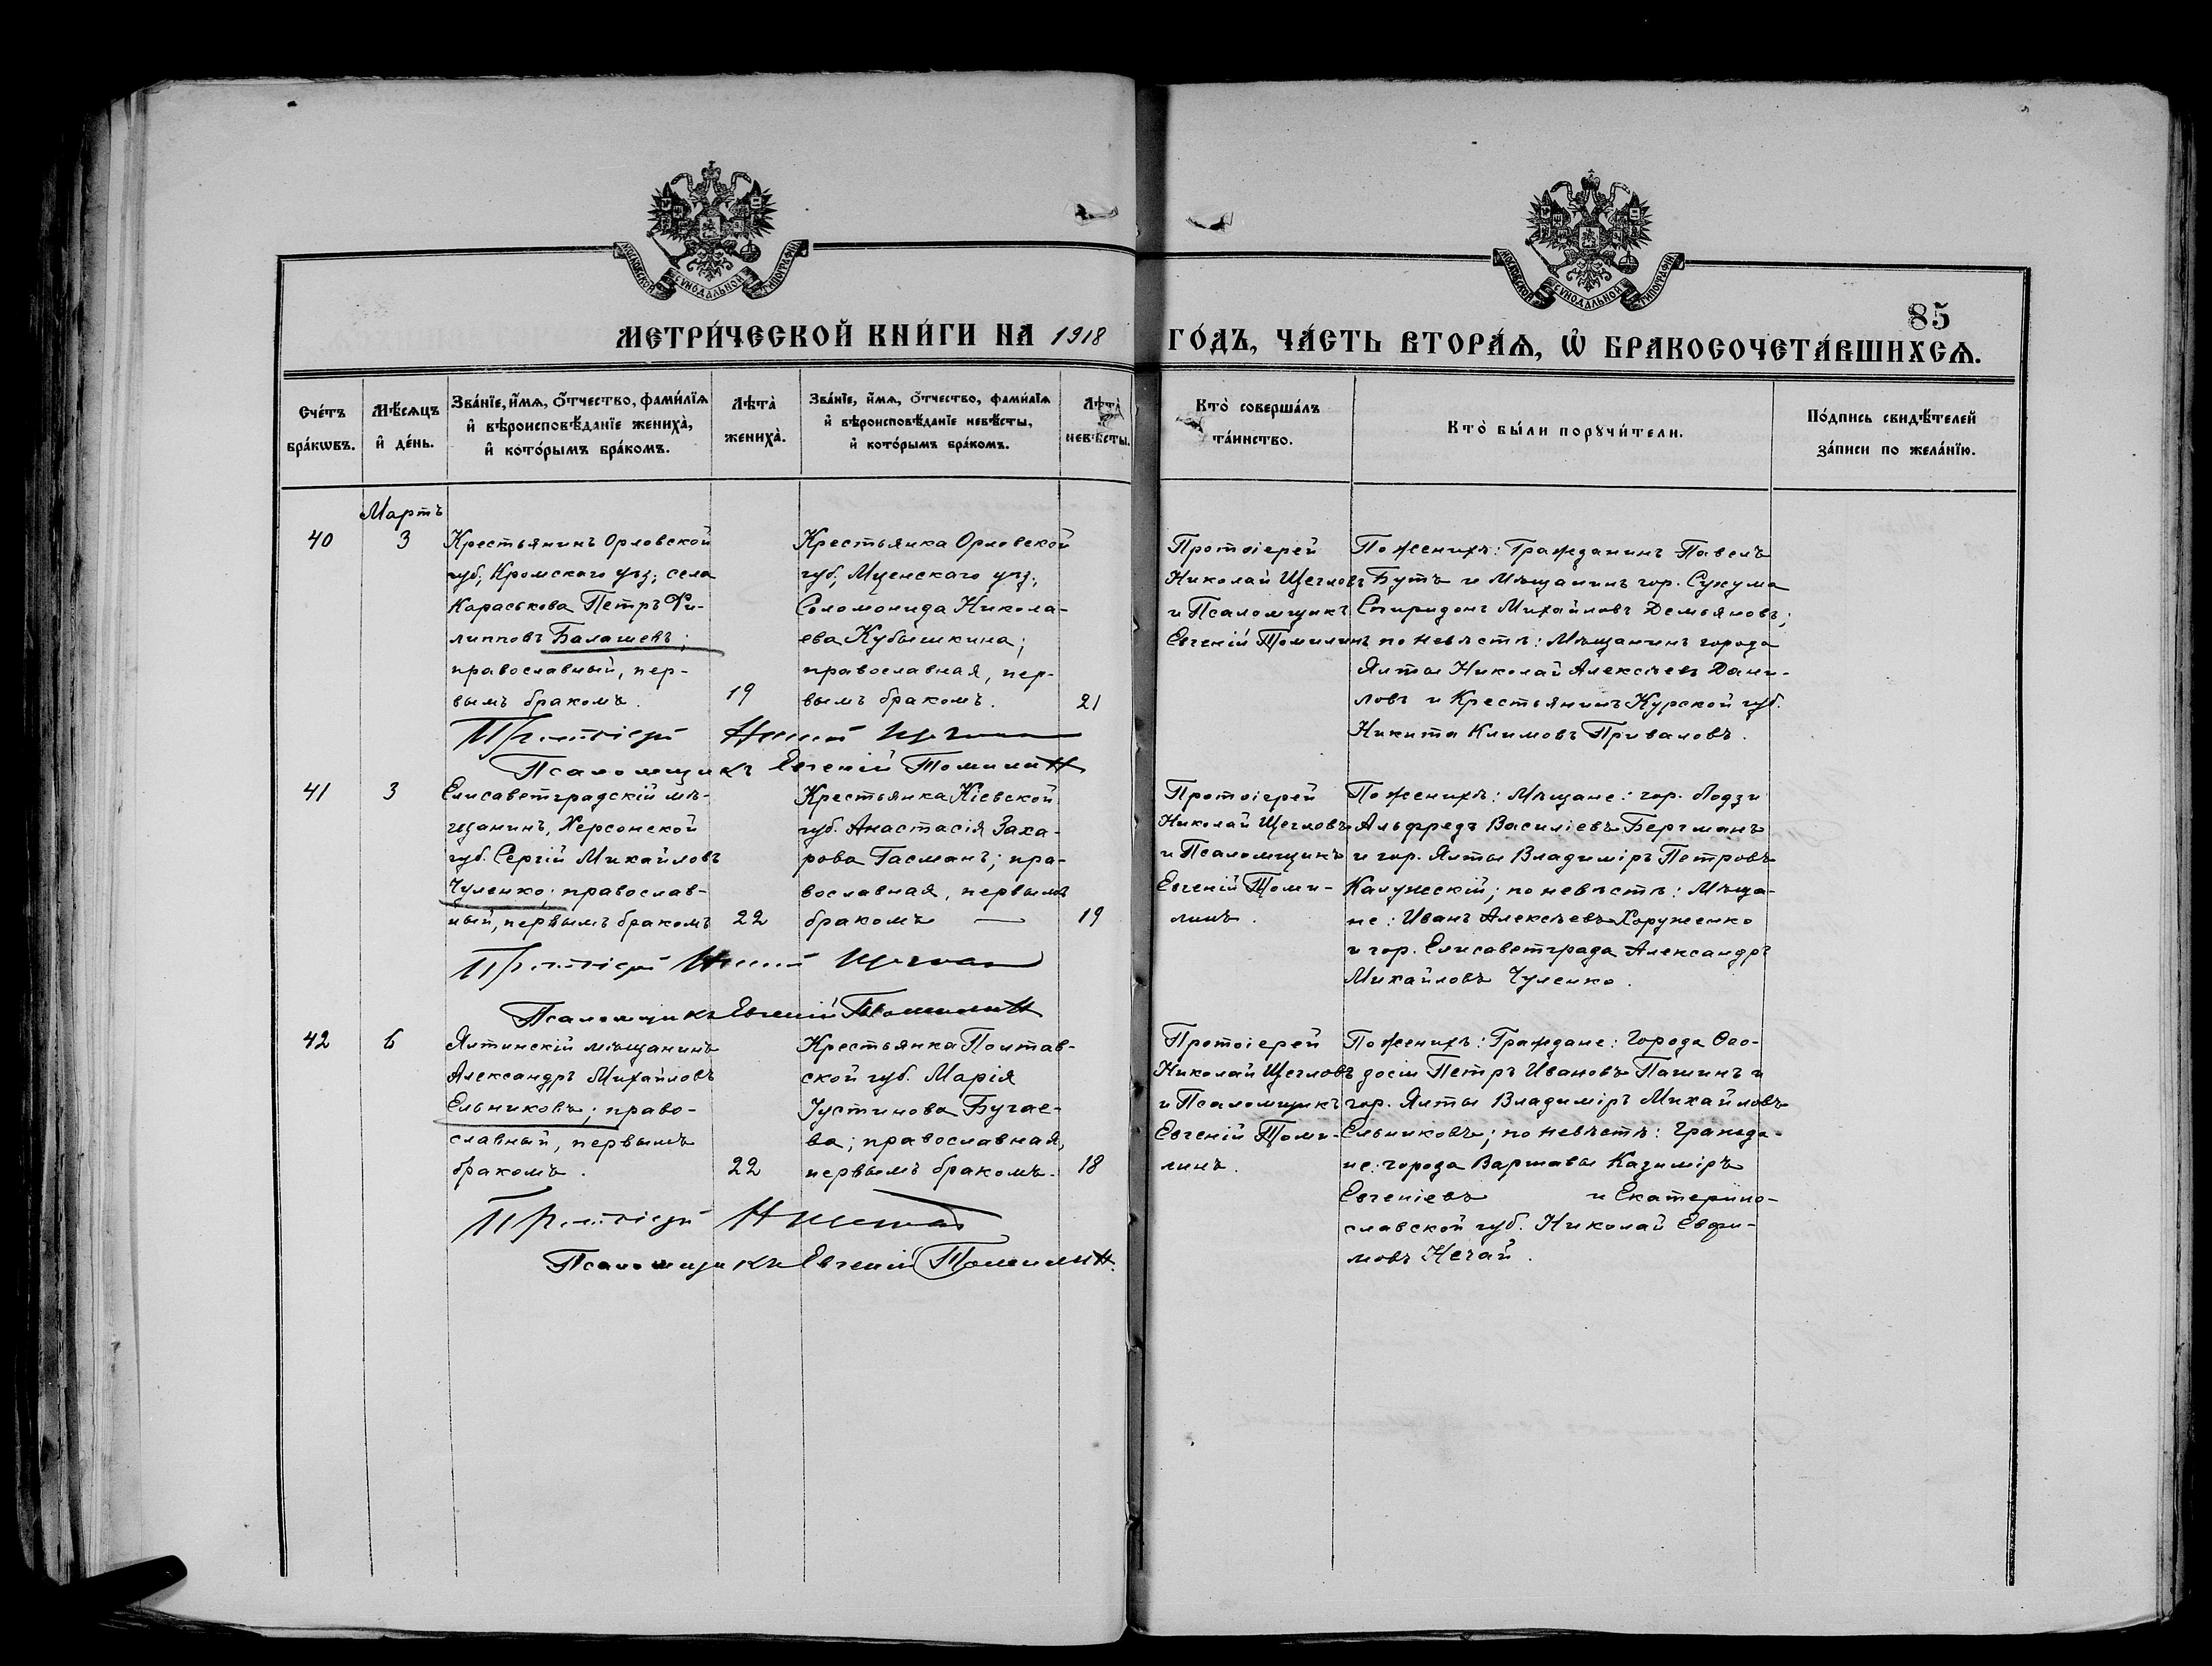 МОСКОВСКОЙ СѴНОДАЛЬНОЙ ТИПОГРАФІИ
МОСКОВСКОЙ СѴНОДАЛЬНОЙ ТИПОГРАФІИ
85
МЕТРИ́ЧЕСКОЙ КНИ́ГИ НА 1918 ГО́ДЪ, ЧА́СТЬ ВТОРА́Ѧ, Ѽ БРАКОСОЧЕТА́ВШИХСѦ.
Сче́тъ
бра́кѡвъ.
Мѣ́сѧцъ
и҆ де́нь.
Зва́нїе, и҆́мѧ, ѻ҆́тчество, фами́лїѧ
и҆ вѣроисповѣ́данїе жениха̀,
и҆ кото́рымъ бра́комъ.
Лѣта̀
жениха̀.
Зва́нїе, и҆́мѧ, ѻ҆́тчество, фами́лїѧ
и҆ вѣроисповѣ́данїе невѣ́сты,
и҆ кото́рымъ бра́комъ.
Лѣта̀
невѣ́сты.
Кто̀ соверша́лъ
та́инство.
Кто̀ бы́ли порꙋчи́тели.
По́дпись свидѣ́телей
за́писи по жела́нїю.
Мартъ
40
3
Крестьянинъ Орловской
губ; Кромскаго уѣз; села
Караськова Петръ Фи-
липповъ Балашевъ;
православный, пер-
вымъ бракомъ.
19
Крестьянка Орловской
губ; Мценскаго уѣз;
Соломонида Никола-
ева Кубышкина;
православная, пер-
вымъ бракомъ.
21
Протоіерей
Николай Щегловъ
и Псаломщикъ
Евгеній Томилинъ
По женихѣ: Гражданинъ Павелъ
Бутъ и Мѣщанинъ гор. Сухума
Спиридонъ Михайловъ Демьяновъ;
по невѣстѣ: Мѣщанинъ города
Ялты Николай Алексѣевъ Дани-
ловъ и Крестьянинъ Курской губ.
Никита Климовъ Приваловъ.
Протоіерей
Псаломщикъ Евгеній Томилин
41
3
Елисаветградскій мѣ-
щанинъ, Херсонской
губ. Сергій Михайловъ
Чуленко; православ-
ный, первымъ бракомъ
22
Крестьянка Кіевской
губ. Анастасія Заха-
рова Гасманъ; пра-
вославная, первымъ
бракомъ —
19
Протоіерей
Николай Щегловъ
и Псаломщикъ
Евгеній Томи-
линъ.
По женихѣ: Мѣщане: гор. Лодзи
Альфредъ Василіевъ Бергманъ
и гор. Ялты Владиміръ Петровъ
Калужскій; по невѣстѣ: Мѣща-
не: Иванъ Алексѣевъ Хоруженко
и гор. Елисаветграда Александръ
Михайловъ Чуленко.
Протоіерей
Псаломщикъ Евгеній Томилин
42
6
Ялтинскій мѣщанинъ
Александръ Михайловъ
Ельниковъ; право-
славный, первымъ
бракомъ.
22
Крестьянка Полтав-
ской губ. Марія
Іустинова Бугае-
ва; православная,
первымъ бракомъ.
18
Протоіерей
Николай Щегловъ
и Псаломщикъ
Евгеній Томи-
линъ.
По женихѣ: Граждане: Города Ѳео-
досіи Петръ Ивановъ Пашинъ и
гор. Ялты Владиміръ Михайловъ
Ельниковъ; по невѣстѣ: Гражда-
не: города Варшавы Казиміръ
Евгеніевъ и Екатерино-
славской губ. Николай Евфи-
мовъ Нечай.
Протоіерей
Псаломщикъ Евгеній Томилин.